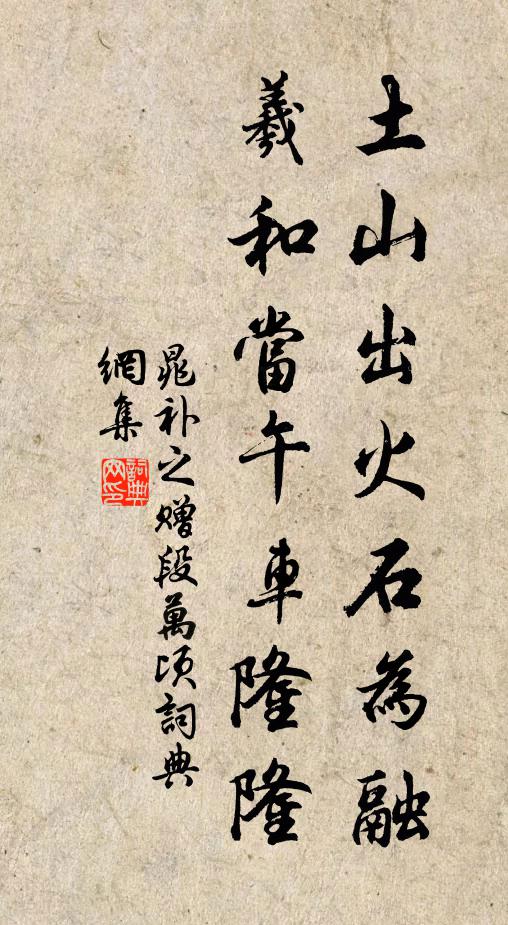 土山出火石為融
羲和當午車隆隆
晁补之贈段萬頃詞典
網集
詞典
网印